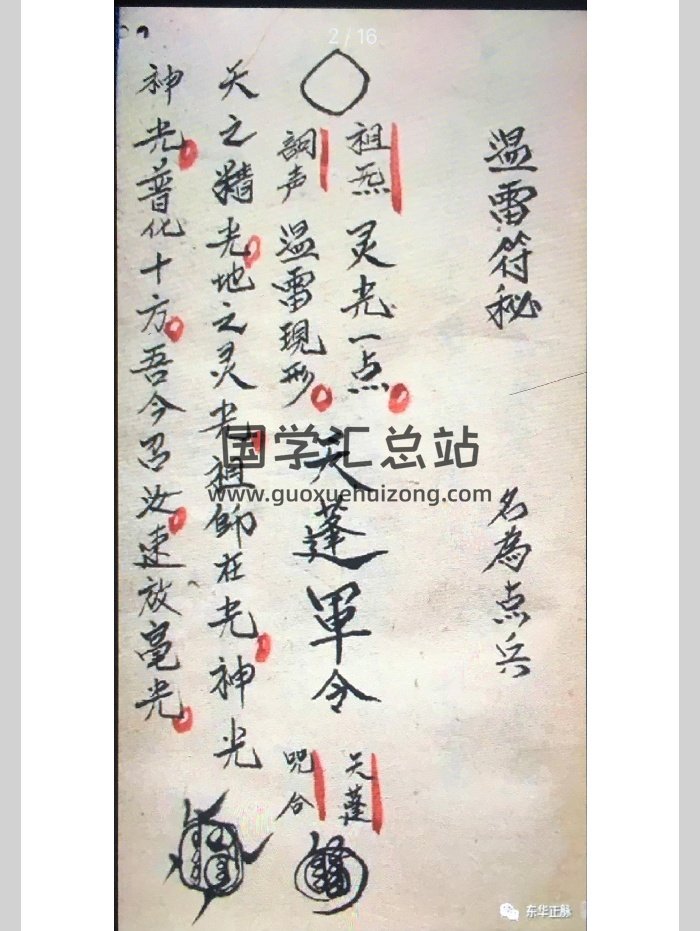 2 / 16
温雷符秘 名為点兵
祖炁 灵光一点
声 温雷現形
天蓬軍令
天蓬
咒合
天之精光地之灵光祖師在光神光
神光普化十方吾今召汝速放毫光
国学汇总站
www.guoxuehuizong.com
东华正脉